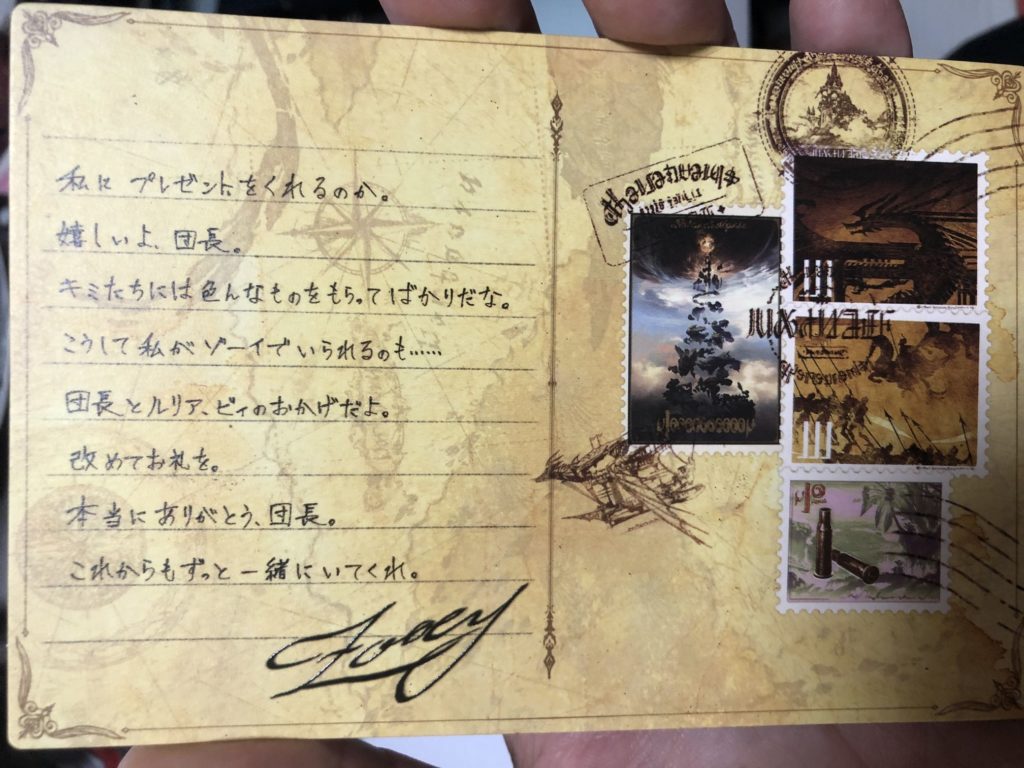 私にプレゼントをくれるのか。
嬉しいよ、団長。
キミたちには色んなものをもらってばかりだな。
こうして私がゾーイでいられるのも……
団長とルリア、ビィのおかげだよ。
改めてお礼を。
本当にありがとう、団長。
これからもずっと一緒にいてくれ。
Zooey